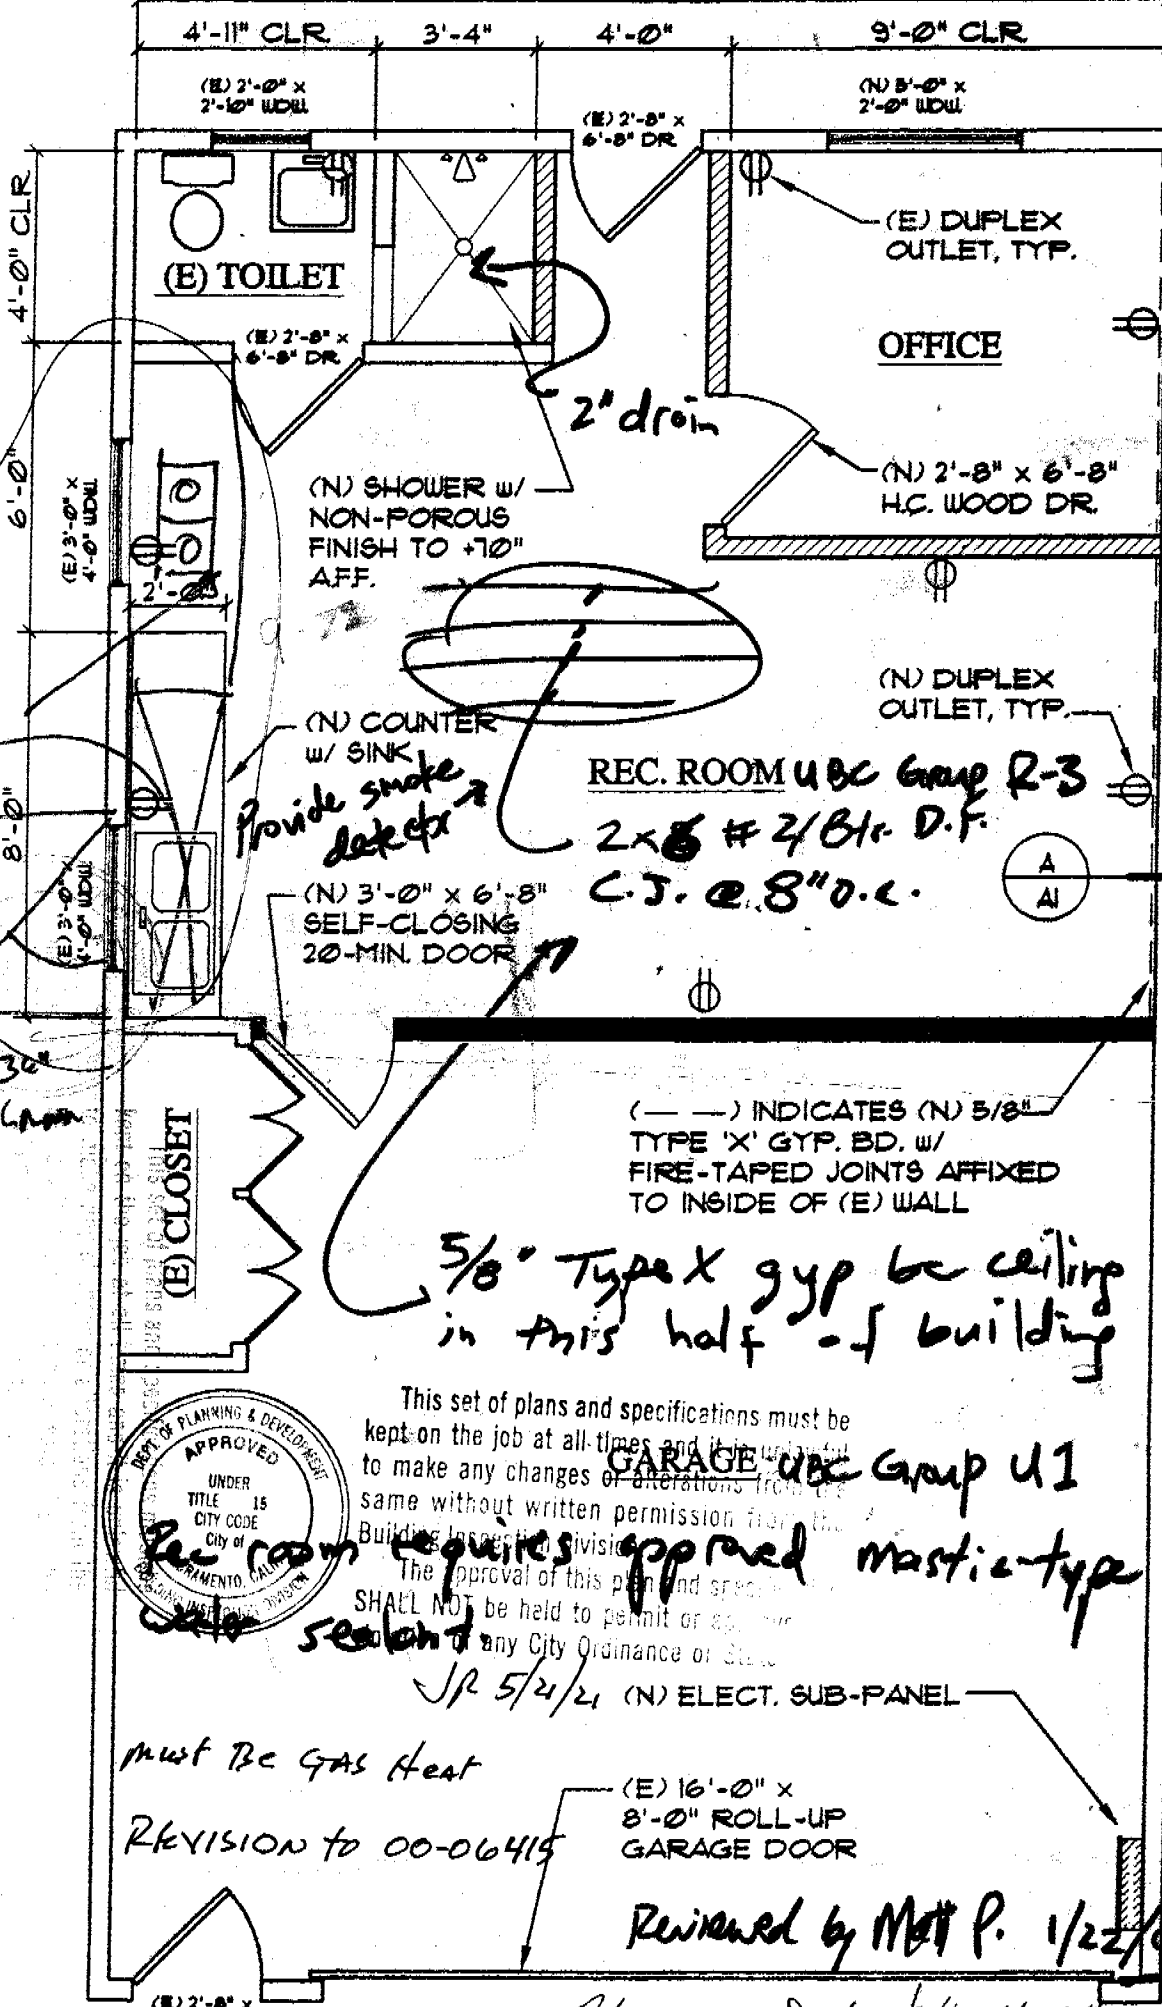 4'-11" CLR.
3'-4"
4'-0"
9'-0" CLR
(E) 2'-0" x
2'-10" WDW
(E) 2'-8" x
6'-8" DR
(N) 5'-0" x
2'-0" WDW
4'-0" CLR
(E) TOILET
(E) DUPLEX
OUTLET, TYP.
(E) 2'-8" x
6'-8" DR
OFFICE
2" drain
6'-0"
(E) 3'-0" x
4'-0" WDW
(N) SHOWER w/
NON-POROUS
FINISH TO +70"
A.F.F.
(N) 2'-8" x 6'-8"
H.C. WOOD DR.
2'-0"
(N) DUPLEX
OUTLET, TYP.
(N) COUNTER
w/ SINK
Provide smoke
detector
REC. ROOM UBC Group R-3
2x6 # 2/Btr. D.F.
C.J. @ 8" o.c.
8'-0"
(E) 3'-0" x
4'-0" WDW
(N) 3'-0" x 6'-8"
SELF-CLOSING
20-MIN. DOOR
A
A1
36"
(E) CLOSET
(— —) INDICATES (N) 5/8"
TYPE 'X' GYP. BD. w/
FIRE-TAPED JOINTS AFFIXED
TO INSIDE OF (E) WALL
5/8" Type X gyp bd ceiling
in this half of building
DEPT. OF PLANNING & DEVELOPMENT
APPROVED
UNDER
TITLE 15
CITY CODE
City of
SACRAMENTO, CALIF.
BUILDING INSPECTIONS DIVISION
This set of plans and specifications must be
kept on the job at all times and it is unlawful
to make any changes or alterations from the
same without written permission from the
Building Inspection Division
The approval of this plan and
SHALL NOT be held to permit or
of any City Ordinance or
GARAGE UBC Group U1
Rec room requires approved mastic-type
sealant.
JR 5/21/21
(N) ELECT. SUB-PANEL
must Be GAS Heat
(E) 16'-0" x
8'-0" ROLL-UP
GARAGE DOOR
REVISION to 00-06415
Reviewed by Matt P. 1/22/
(E) 2'-8" x